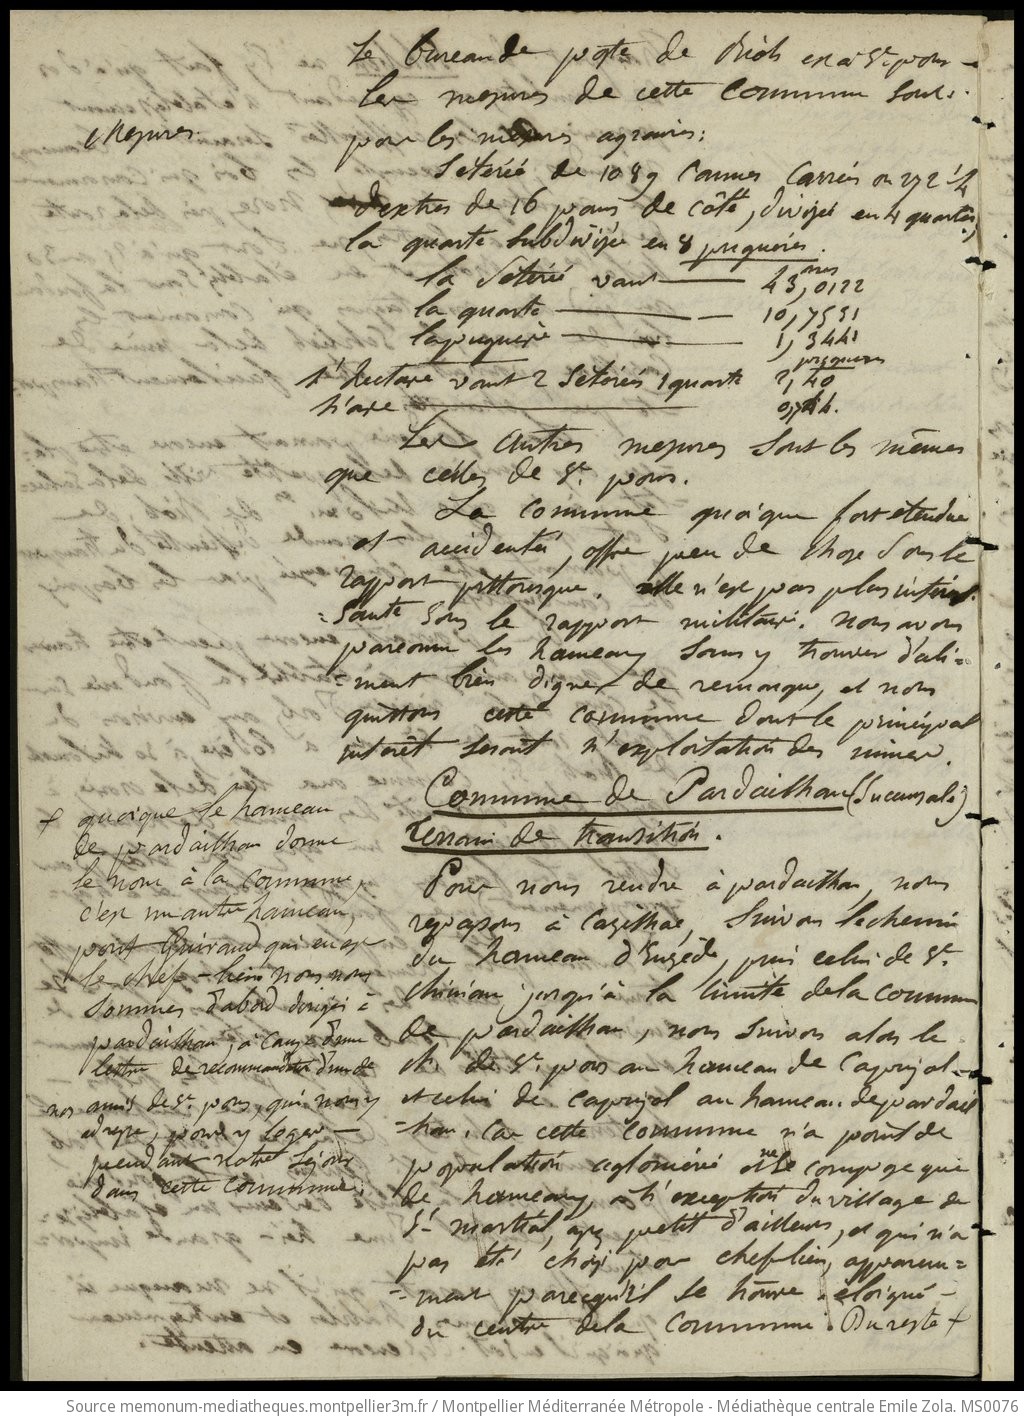 Le bureau de poste de Riols est à St. pons –
Les mesures de cette Commune sont.
Mesures.
pour les mesures agraires:
Séterée de 1089 Cannes Carrées ou 272 1/4
dextres de 16 pans de côté, divisée en 4 quartes,
la quarte subdivisée en 8 pugnères.
la Séterée vaut — 43,0122 ares
la quarte — 10,7531
la pugnère — 1,3441
pugneres
L'hectare vaut 2 Séterées 1 quarte 2,40
L'are — 0,744.
Les autres mesures sont les mêmes
que celles de St. pons.
La commune quoique fort étendue
et accidentée, offre peu de chose sous le
rapport pittoresque. elle n'est pas plus intéres-
=sante sous le rapport militaire. nous avons
parcouru les hameaux sans y trouver d'ali=
=ment bien digne de remarque, et nous
quittons cette commune dont le principal
intérêt serait l'exploitation des mines.
Commune de Pardailhan (Succursale)
terrain de transition.
Pour nous rendre à pardailhan, nous
repassons à Cazilhac, suivons le chemin
du hameau d'Euzède, puis celui de St.
Chinian jusqu'à la limite de la commune
de pardailhan, nous suivons alors le
ch. de St. pons au hameau de Capujol –
et celui de Capujol au hameau de pardail
=han. Car cette commune n'a point de
population aglomérée et ne se compose que
de hameaux, à l'exception du village de
St. martial, assez petit d'ailleurs, et qui n'a
pas été choisi pour chef lieu, apparem=
=ment parcequ'il se trouve éloigné –
du centre de la commune. Du reste +
+ quoique le hameau
de pardailhan donne
le nom à la commune,
c'est un autre hameau,
pont Guiraud qui en est
le chef-lieu nous nous
sommes d'abord dirigés à
pardailhan, à cause d'une
lettre de recommandation d'un de
nos amis de St. pons, qui nous y
adresse, pour y loger –
pendant notre séjour
dans cette commune.
Source memonum-mediatheques.montpellier3m.fr / Montpellier Méditerranée Métropole - Médiathèque centrale Emile Zola. MS0076